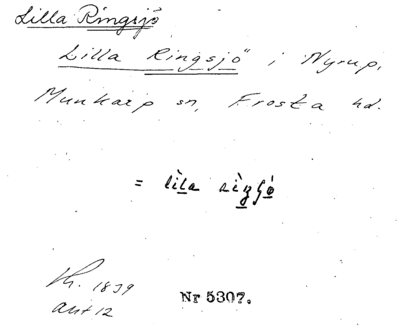 Lilla Ringsjö
Lilla Ringsjö i Nyrup,
Munkarp sn, Frosta hd.
= lìla
1839
Nr 5307.